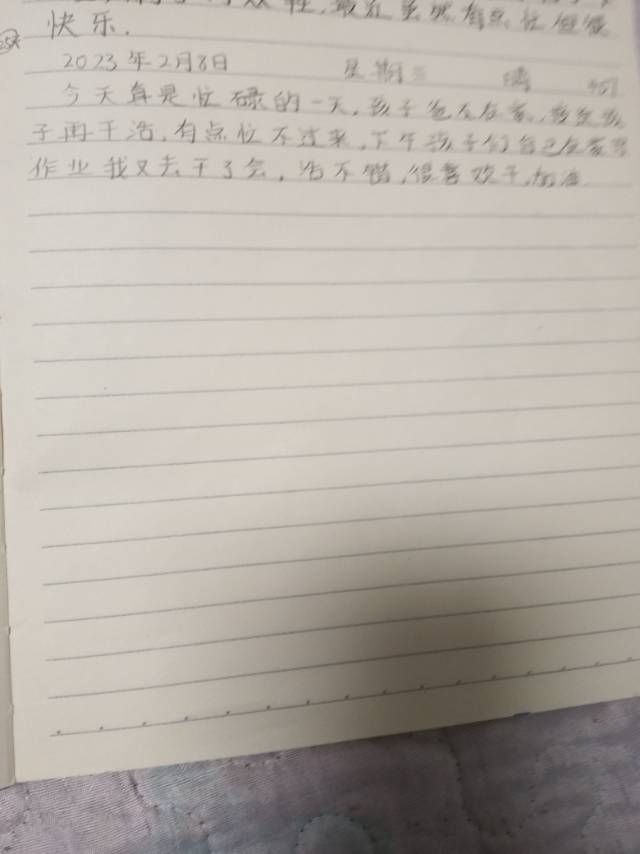 最近虽然有点忙但很
快乐.
2023年2月8日 星期三 晴
今天真是忙碌的一天,孩子爸不在家,
子再干活,有点忙不过来,下午孩子们自己在家写
作业我又去干了会,活不错,很喜欢干,加油